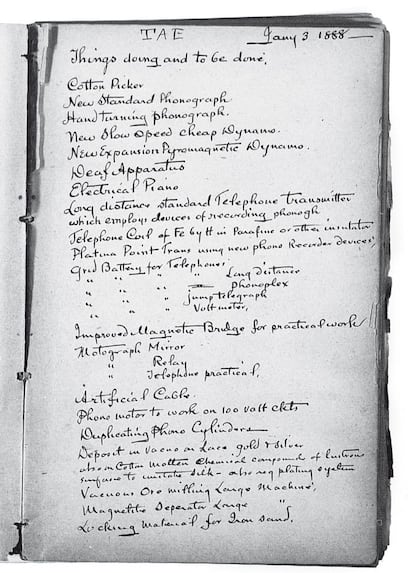 TAE Jany 3 1888
Things doing and to be done,
Cotton Picker
New Standard Phonograph
Hand turning phonograph.
New Slow Speed cheap Dynamo.
New Expansion Pyromagnetic Dynamo.
Deaf Apparatus
Electrical Piano
Long distance standard Telephone Transmitter
which employs devices of recording phonogh
Telephone Coil of Fe by tt in Parafine or other insulator
Platina Point Trans using new phono Recorder devices,
Grid Battery for Telephones,
" " " Long distance
" " " Phonoplex
" " " Jump telegraph
" " " Voltmeter,
Improved Magnetic Bridge for practical work
Motograph Mirror
" Relay
" Telephone practical,
Artificial Cable
Phono motor to work on 100 volt ckts
Duplicating Phono Cylinders
Deposit in vacuo on Lace gold & silver
also on Cotton Molten Chemical compound of lustrous
surface to imitate silk - also reg plating system
Vacuous Ore milling Large Machine,
Magnetic Seperator Large "
Locking Material for Iron sand,